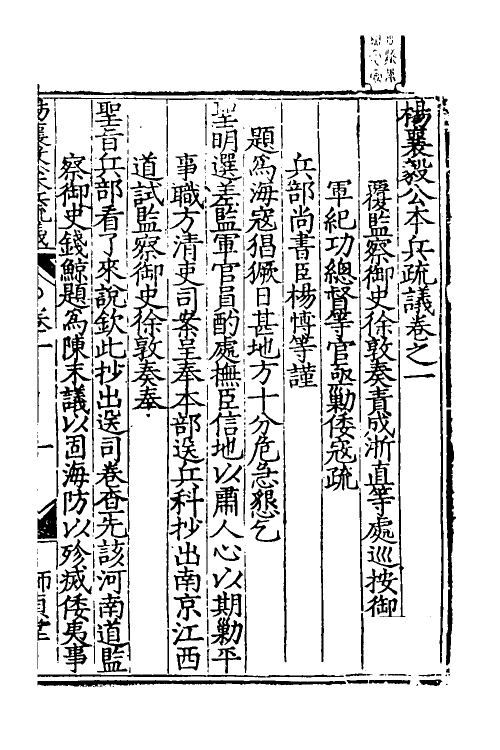 楊襄毅公本兵疏議卷之一
覆監察御史徐敦奏責成浙直等處巡按御
軍紀功總督等官亟勦倭寇疏
兵部尚書臣楊博等謹
題為海寇猖獗日甚地方十分危急懇乞
聖明選差監軍官員酌處撫臣信地以肅人心以期勦平
事職方清吏司案呈奉本部送兵科抄出南京江西
道試監察御史徐敦奏奉
聖旨兵部看了來說欽此抄出送司卷查先該河南道監
察御史錢鯨題為陳末議以固海防以殄滅倭夷事
卷一
一
師貞堂